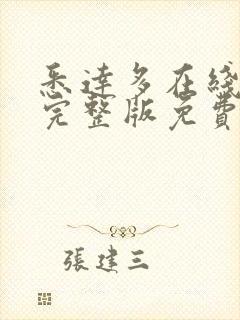 悉達多在綫
完整版免費
張建三